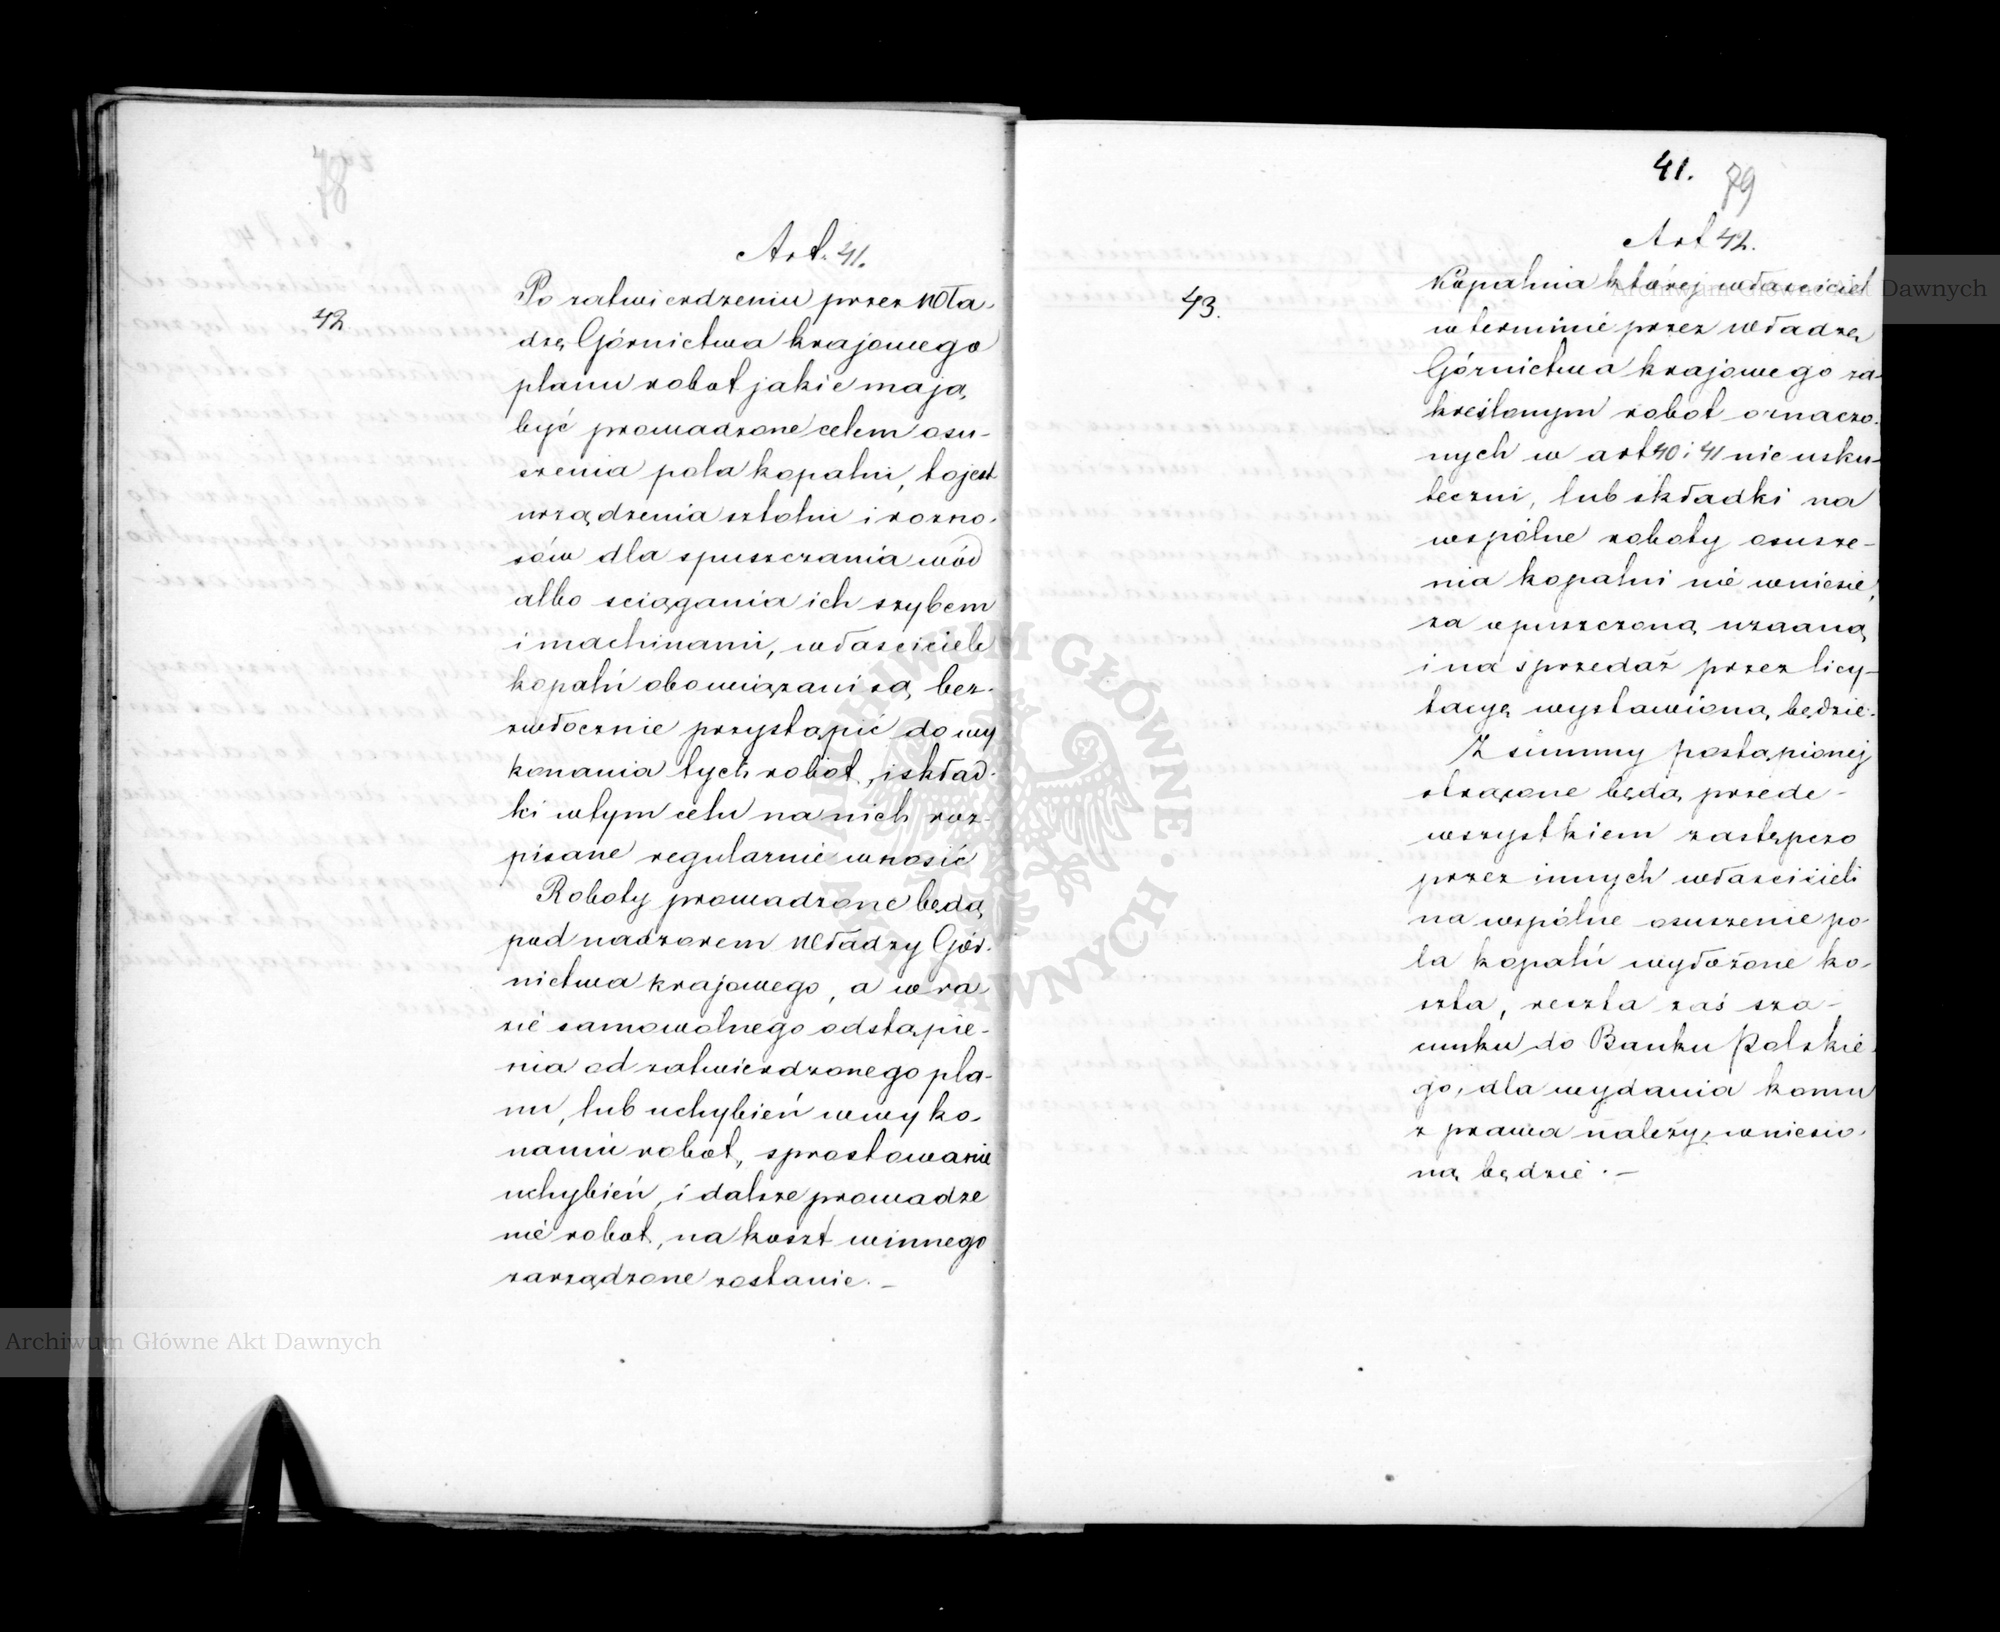 Art. 41.
42
Po zatwierdzeniu przez Wła-
dzę Górnictwa krajowego
planu robot jakie mają
być prowadzone celem osu-
szenia pola kopalni, to jest
urządzenia sztolni i rozno-
sów dla spuszczania wód
albo sciągania ich szybem
i machinami, właściciele
kopalń obowiązani są, bez-
zwłocznie przystąpić do wy
konania tych robot, i skład-
ki w tym celu na nich roz-
pisane regularnie wnosić
Roboty prowadzone będą
pod nadzorem Władzy Gór-
nictwa krajowego, a w ra
zie samowolnego odstąpie-
nia od zatwierdzonego pla-
nu, lub uchybień w wyko-
naniu robot, sprostowanie
uchybień, i dalsze prowadze
nie robot, na koszt winnego
zarządzone zostanie. –
41.
79
Art 42.
43.
Kopalnia której właściciel
w terminie przez władzę
Górnictwa krajowego za-
kreślonym robot oznaczo-
nych w art 40 i 41 nie usku-
teczni, lub składki na
wspólne roboty osusze-
nia kopalni nie wniesie,
za opuszczoną uznaną
i na sprzedaż przez licy-
tacyę wystawioną będzie.
Z summy postąpionej
strącone będą przede-
wszystkiem zastępczo
przez innych właścicieli
na wspólne osuszenie po-
la kopalń wyłożone ko-
szta, reszta zaś sza-
cunku do Banku Polskie-
go, dla wydania komu
z prawa należy, wniesio-
ną będzie. –
Archiwum Główne Akt Dawnych
Archiwum Główne Akt Dawnych
ARCHIWUM GŁÓWNE AKT DAWNYCH